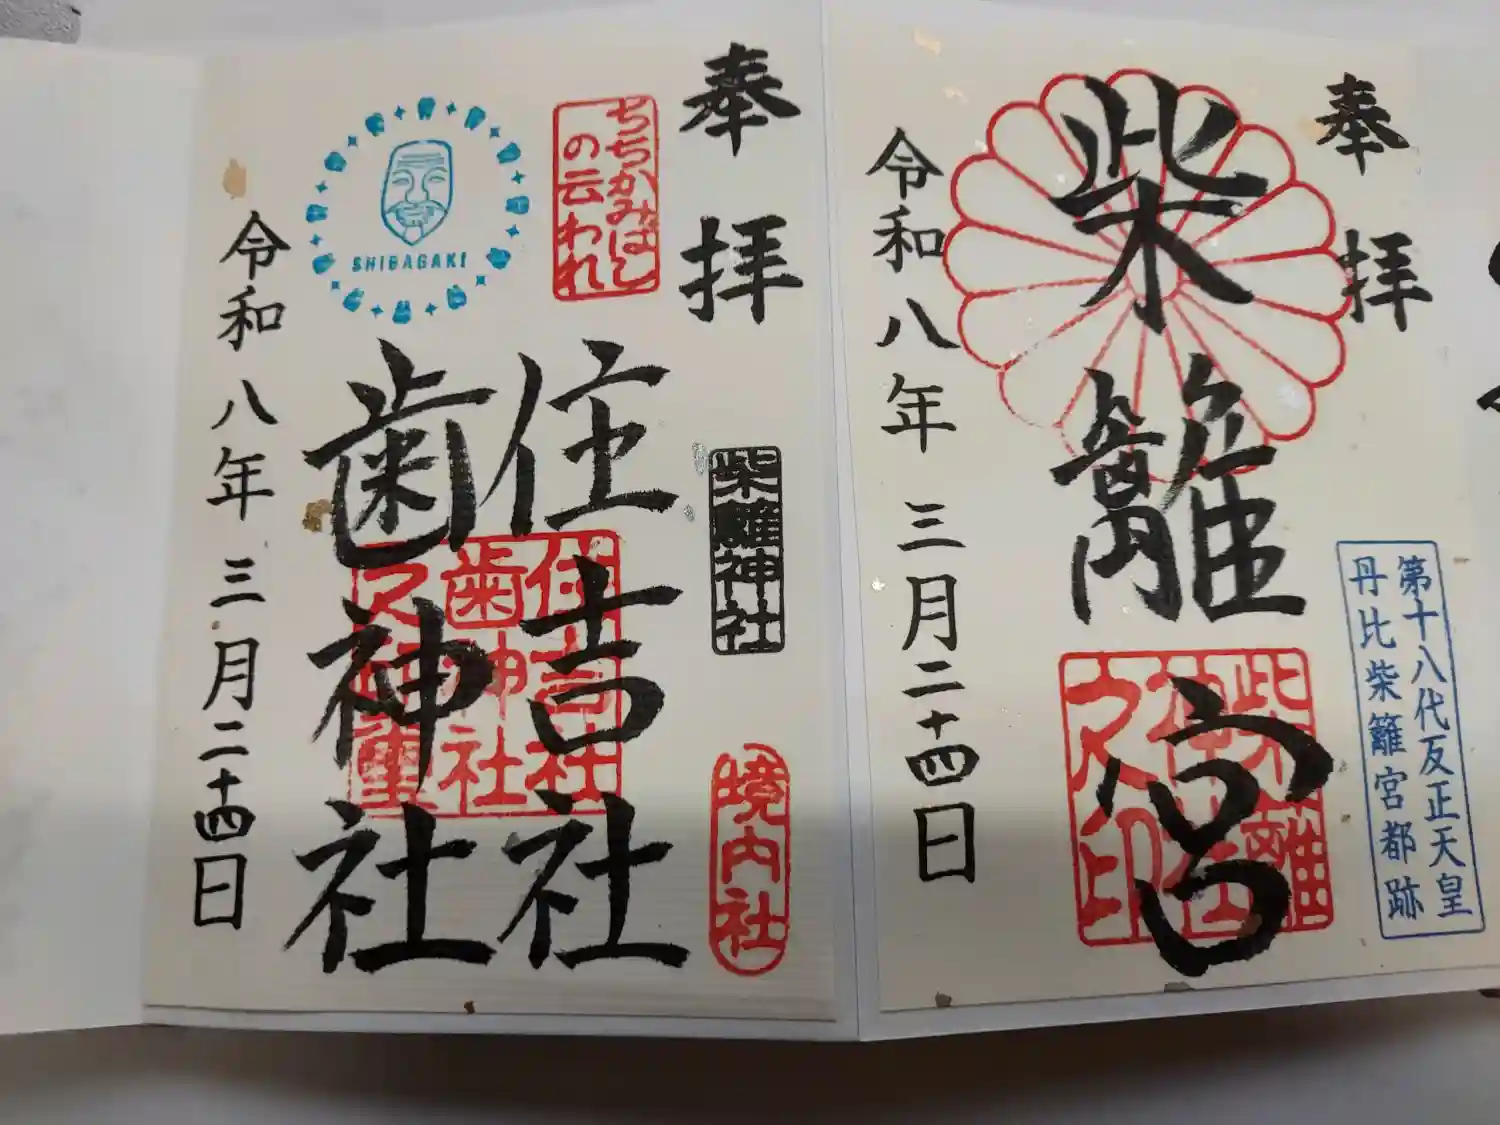 奉拝
柴籬宮
第十八代反正天皇
丹比柴籬宮都跡
令和八年三月二十四日
奉拝
ちちかみばし
の云われ
柴籬神社
境内社
住吉社
歯神社
住吉社
歯神社
SHIBAGAKI
令和八年三月二十四日